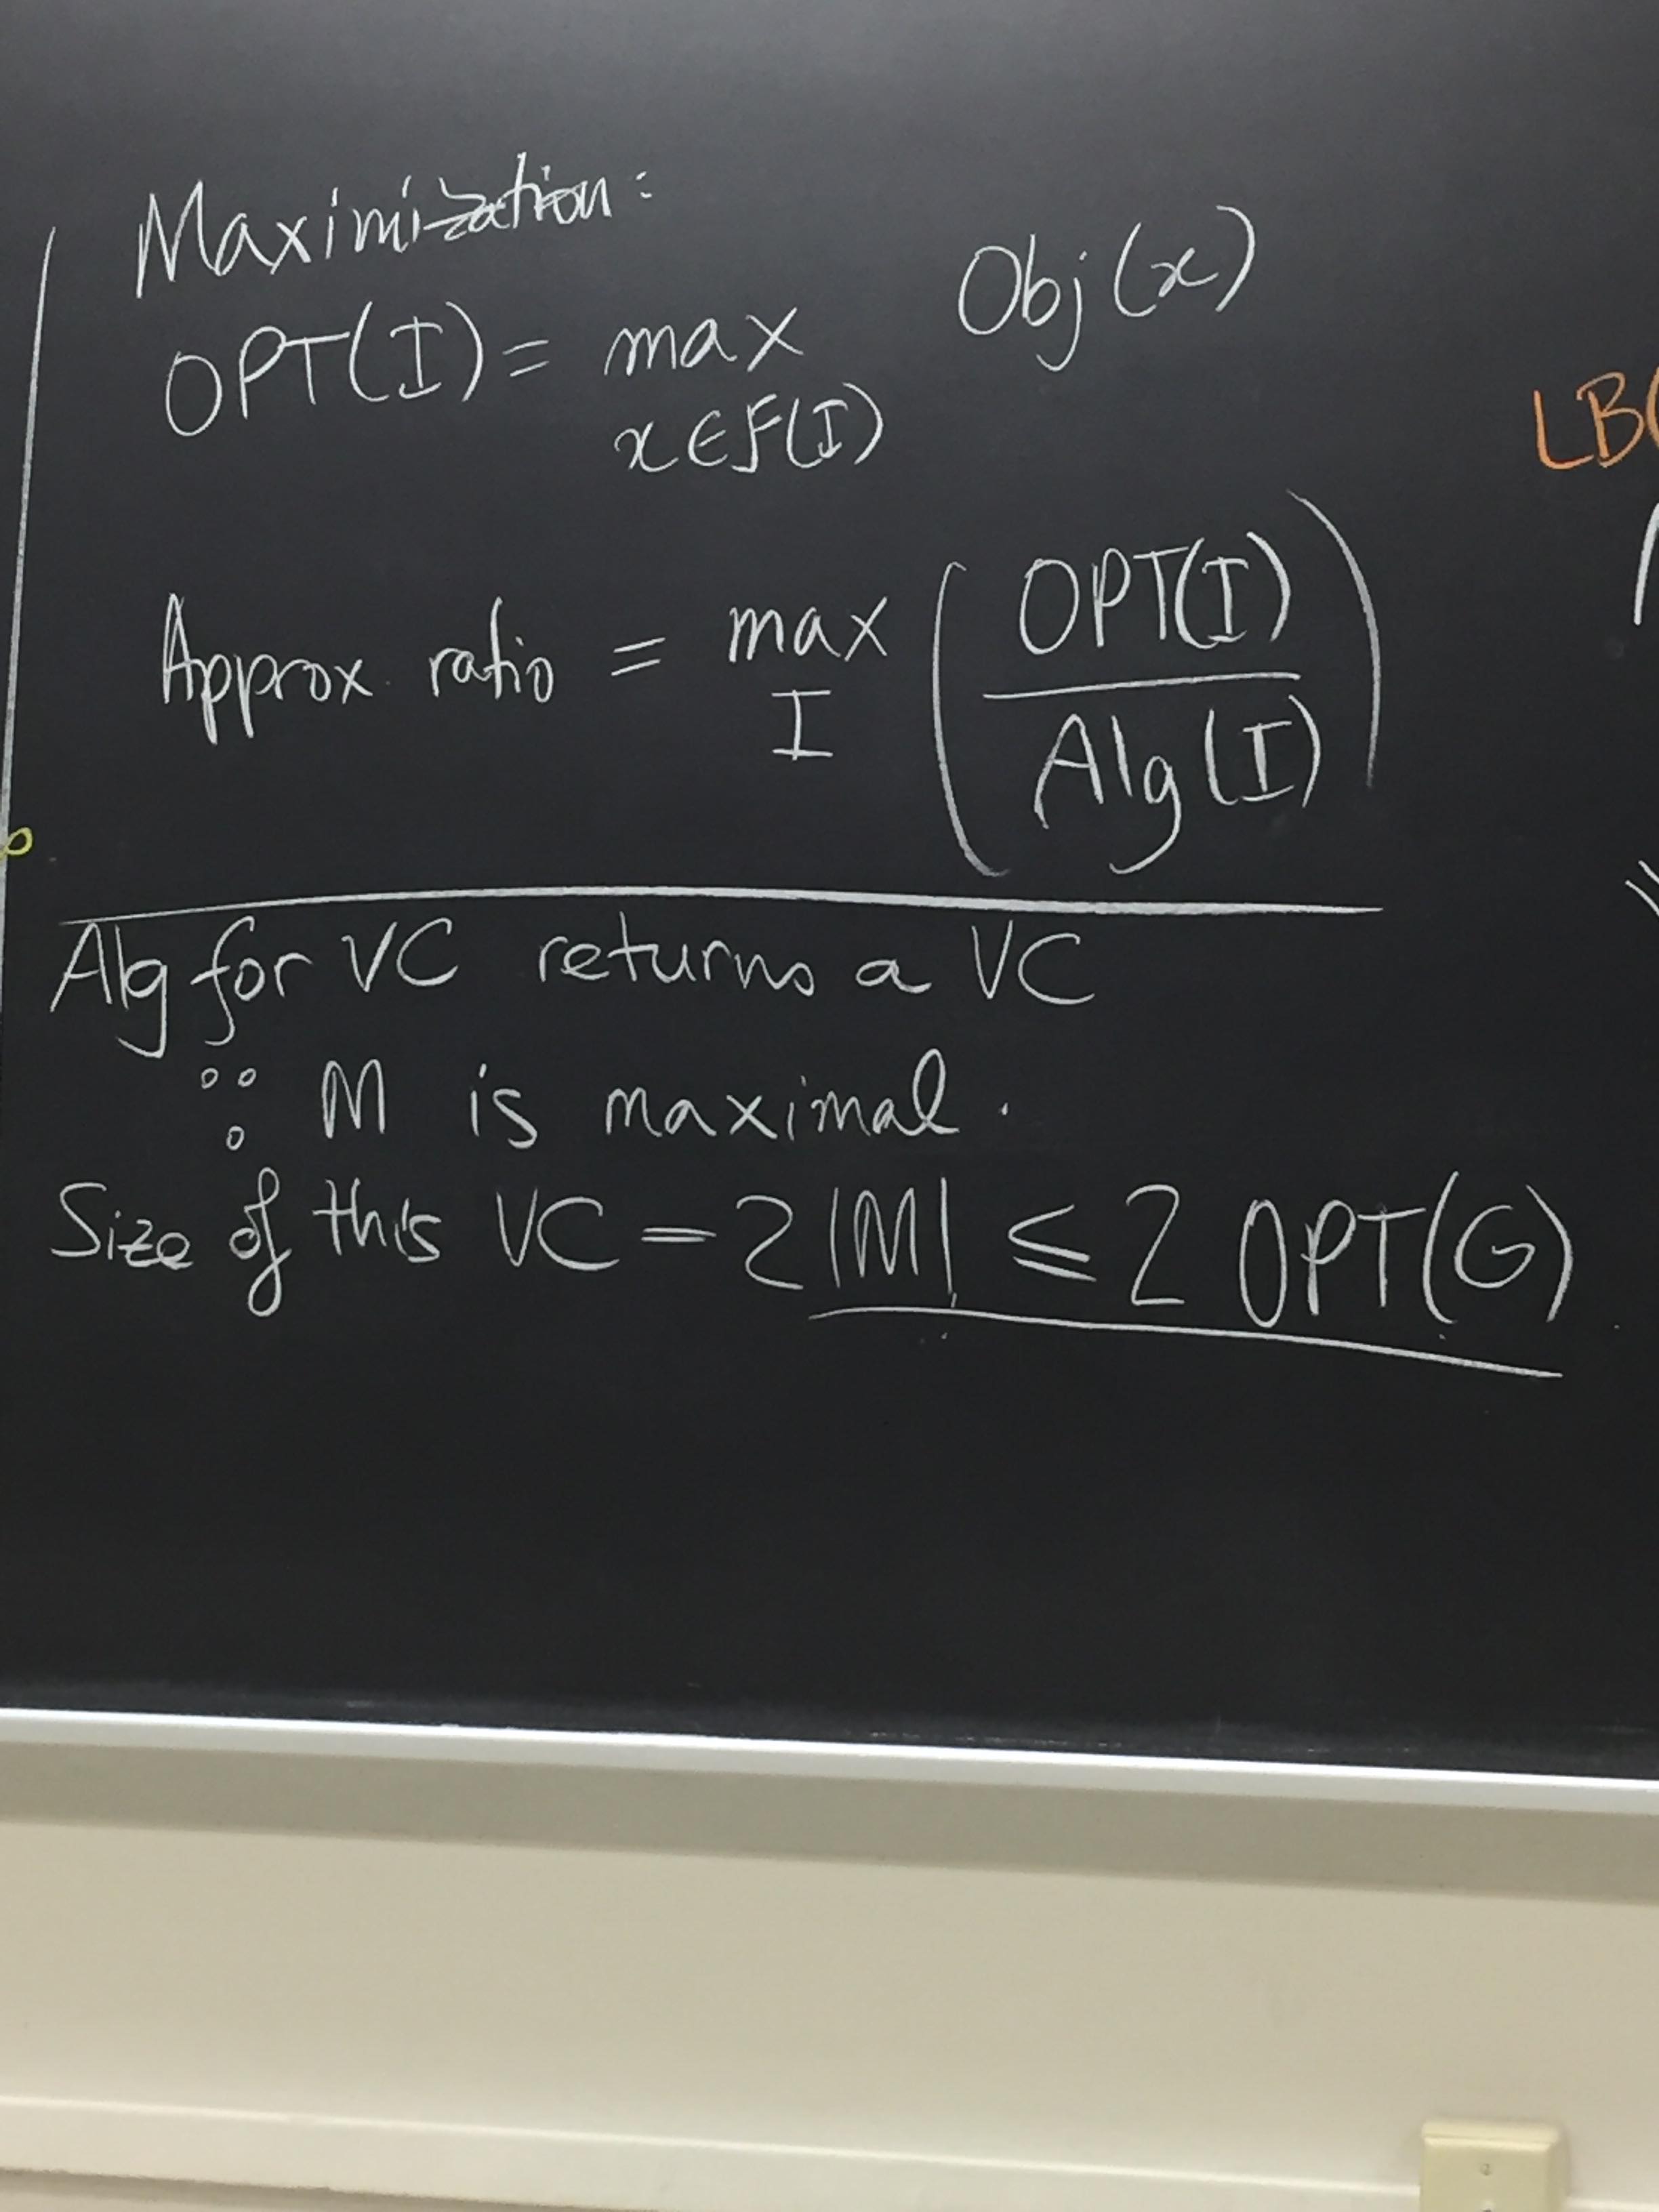 Maximization:
OPT(I) = max Obj(x)
x∈F(I)
Approx. ratio = max ( OPT(I) / Alg(I) )
I
Alg for VC returns a VC
∵ M is maximal.
Size of this VC = 2|M| ≤ 2 OPT(G)
LB(